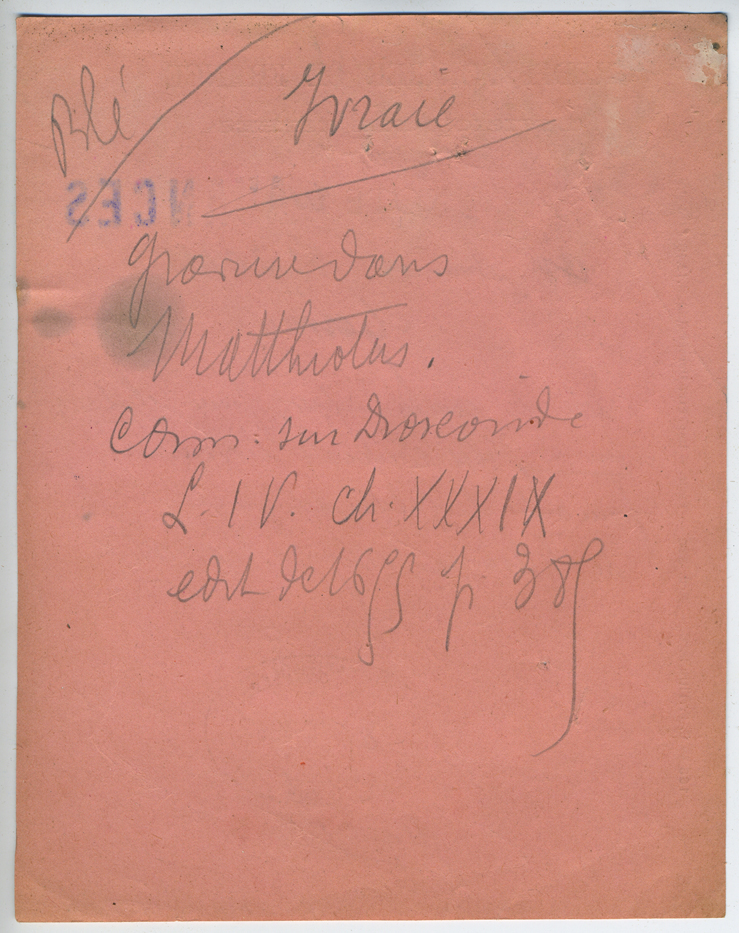 Blé
Ivraie
NCES
Gravure dans
Matthiolus.
Com: sur Dioscoride
L. IV. ch. XXXIX
edit de 1655 p 385